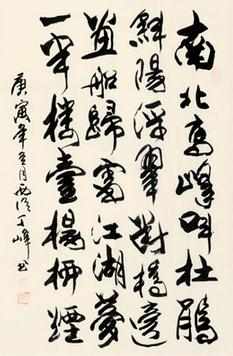 南北高峰叫杜鵑
斜陽浮翠斷橋邊
畫船歸處江湖夢
一半樓臺楊柳煙
庚寅年 月 丁峰書